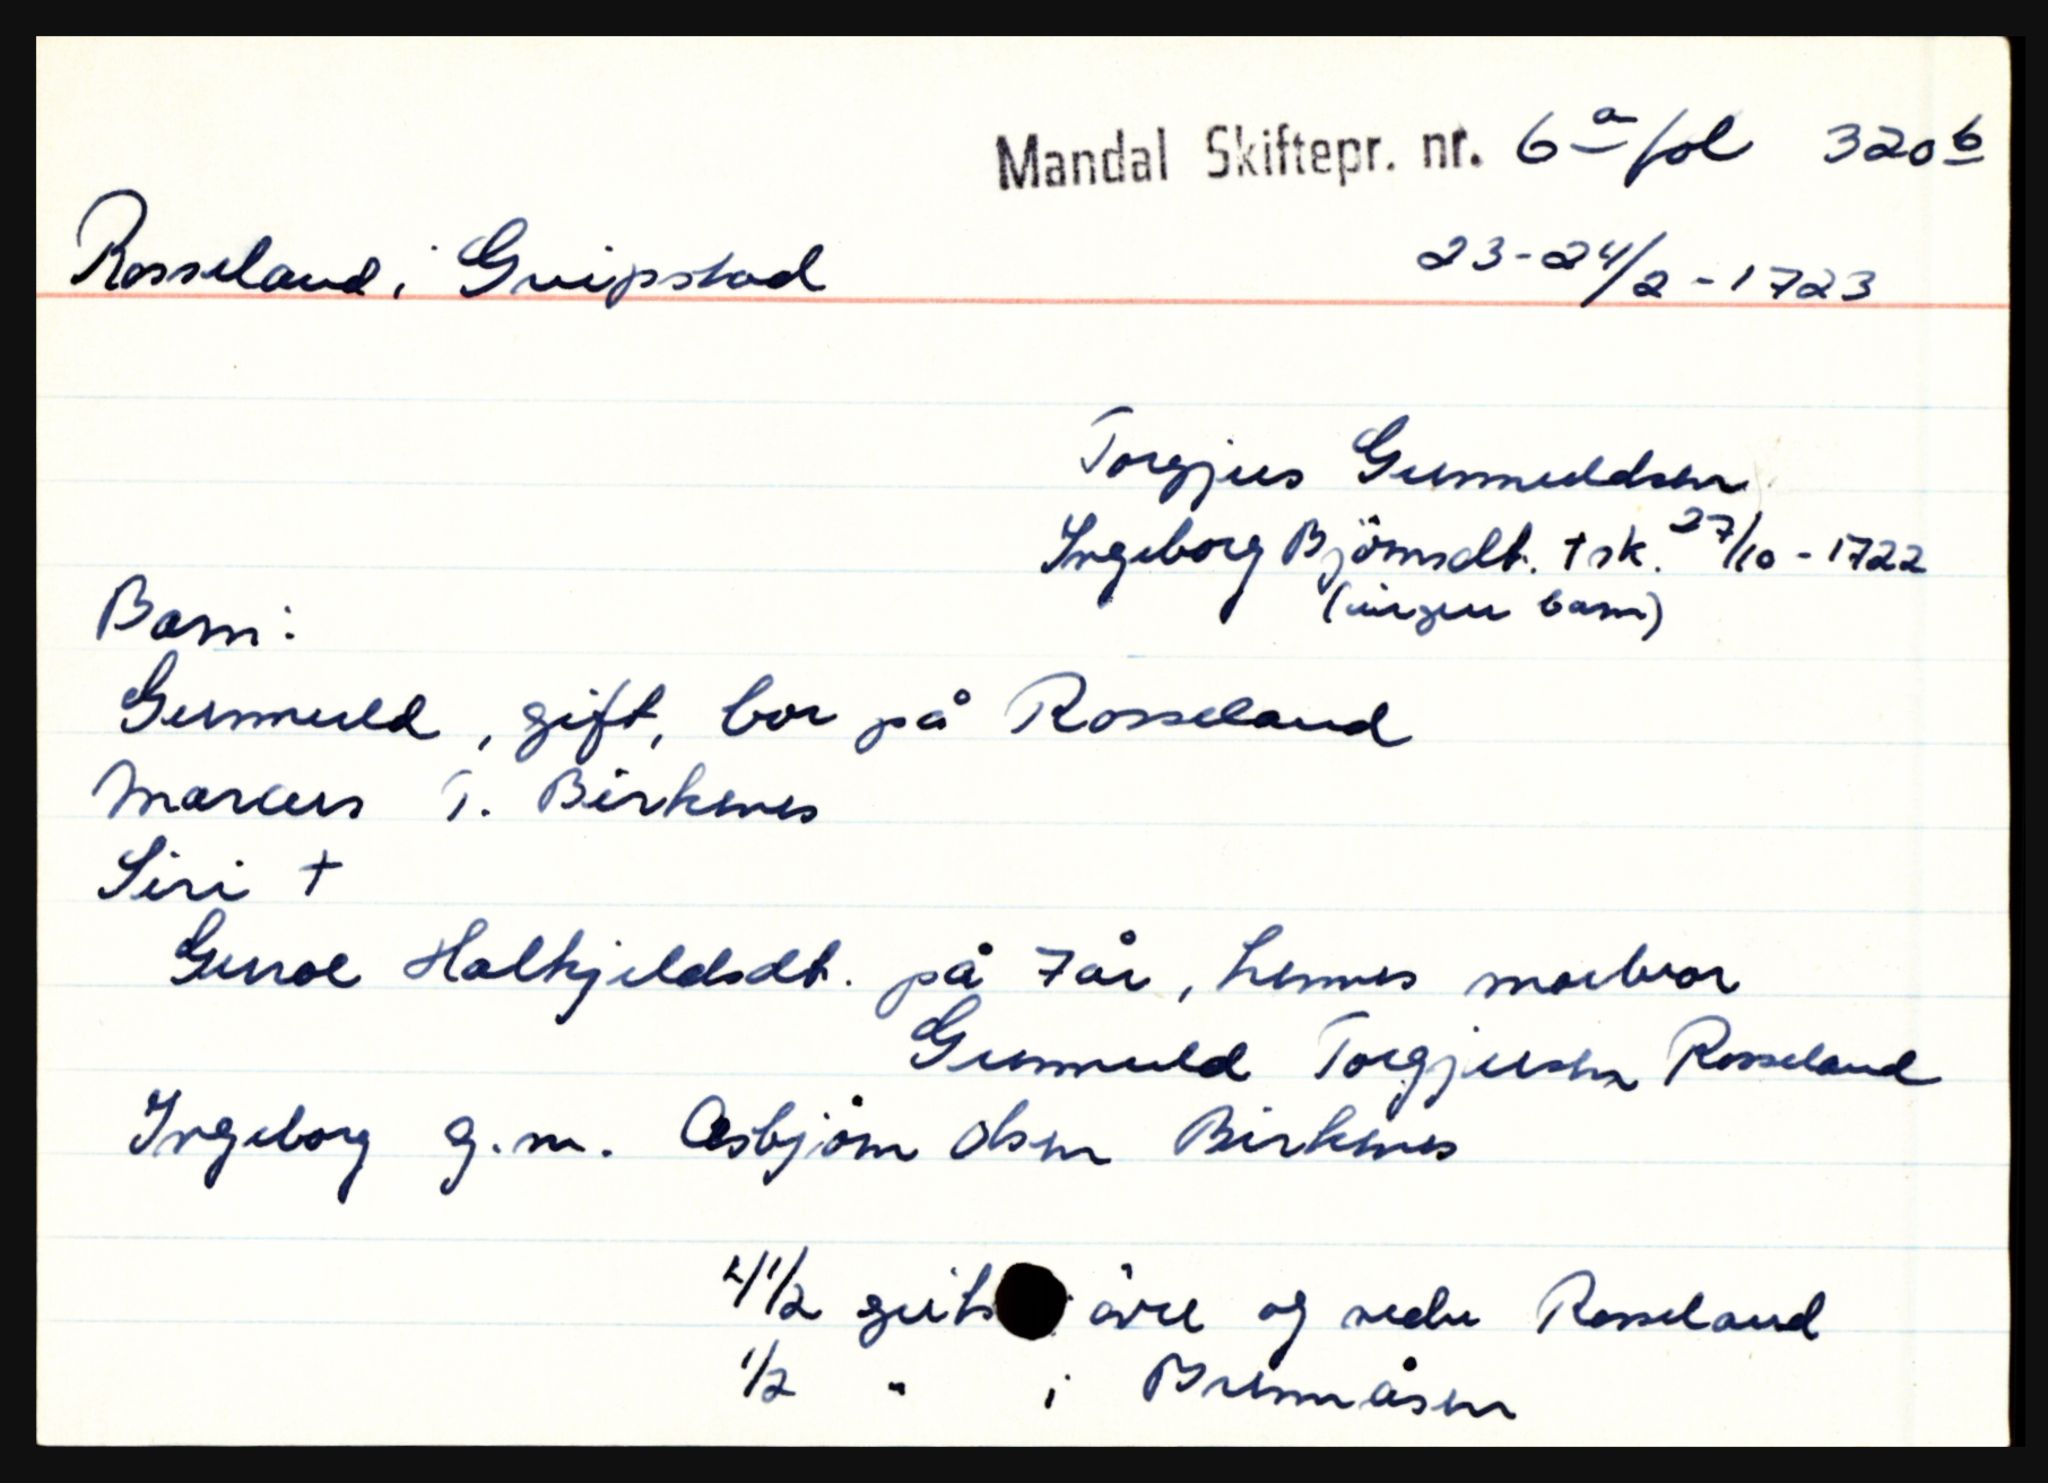 Mandal Skiftepr. nr. 6a fol 320b
Rosseland i Gripstad 23-24/2-1723
Torgjus Gunnuldsen
Ingeborg Björnsdt. † sk. 27/10-1722
(ingen barn)
Barn:
Gunnuld, gift, bor på Rosseland
Marcus T. Birkenes
Siri †
Guroe Halkjeldsdt. på 7 år, hennes morbror
Gunnuld Torgjusen Rosseland
Ingeborg g.m. Asbjörn Olsen Birkenes
4 1/2 gits i övre og nedre Rosseland
1/2 " i Brunnåsen